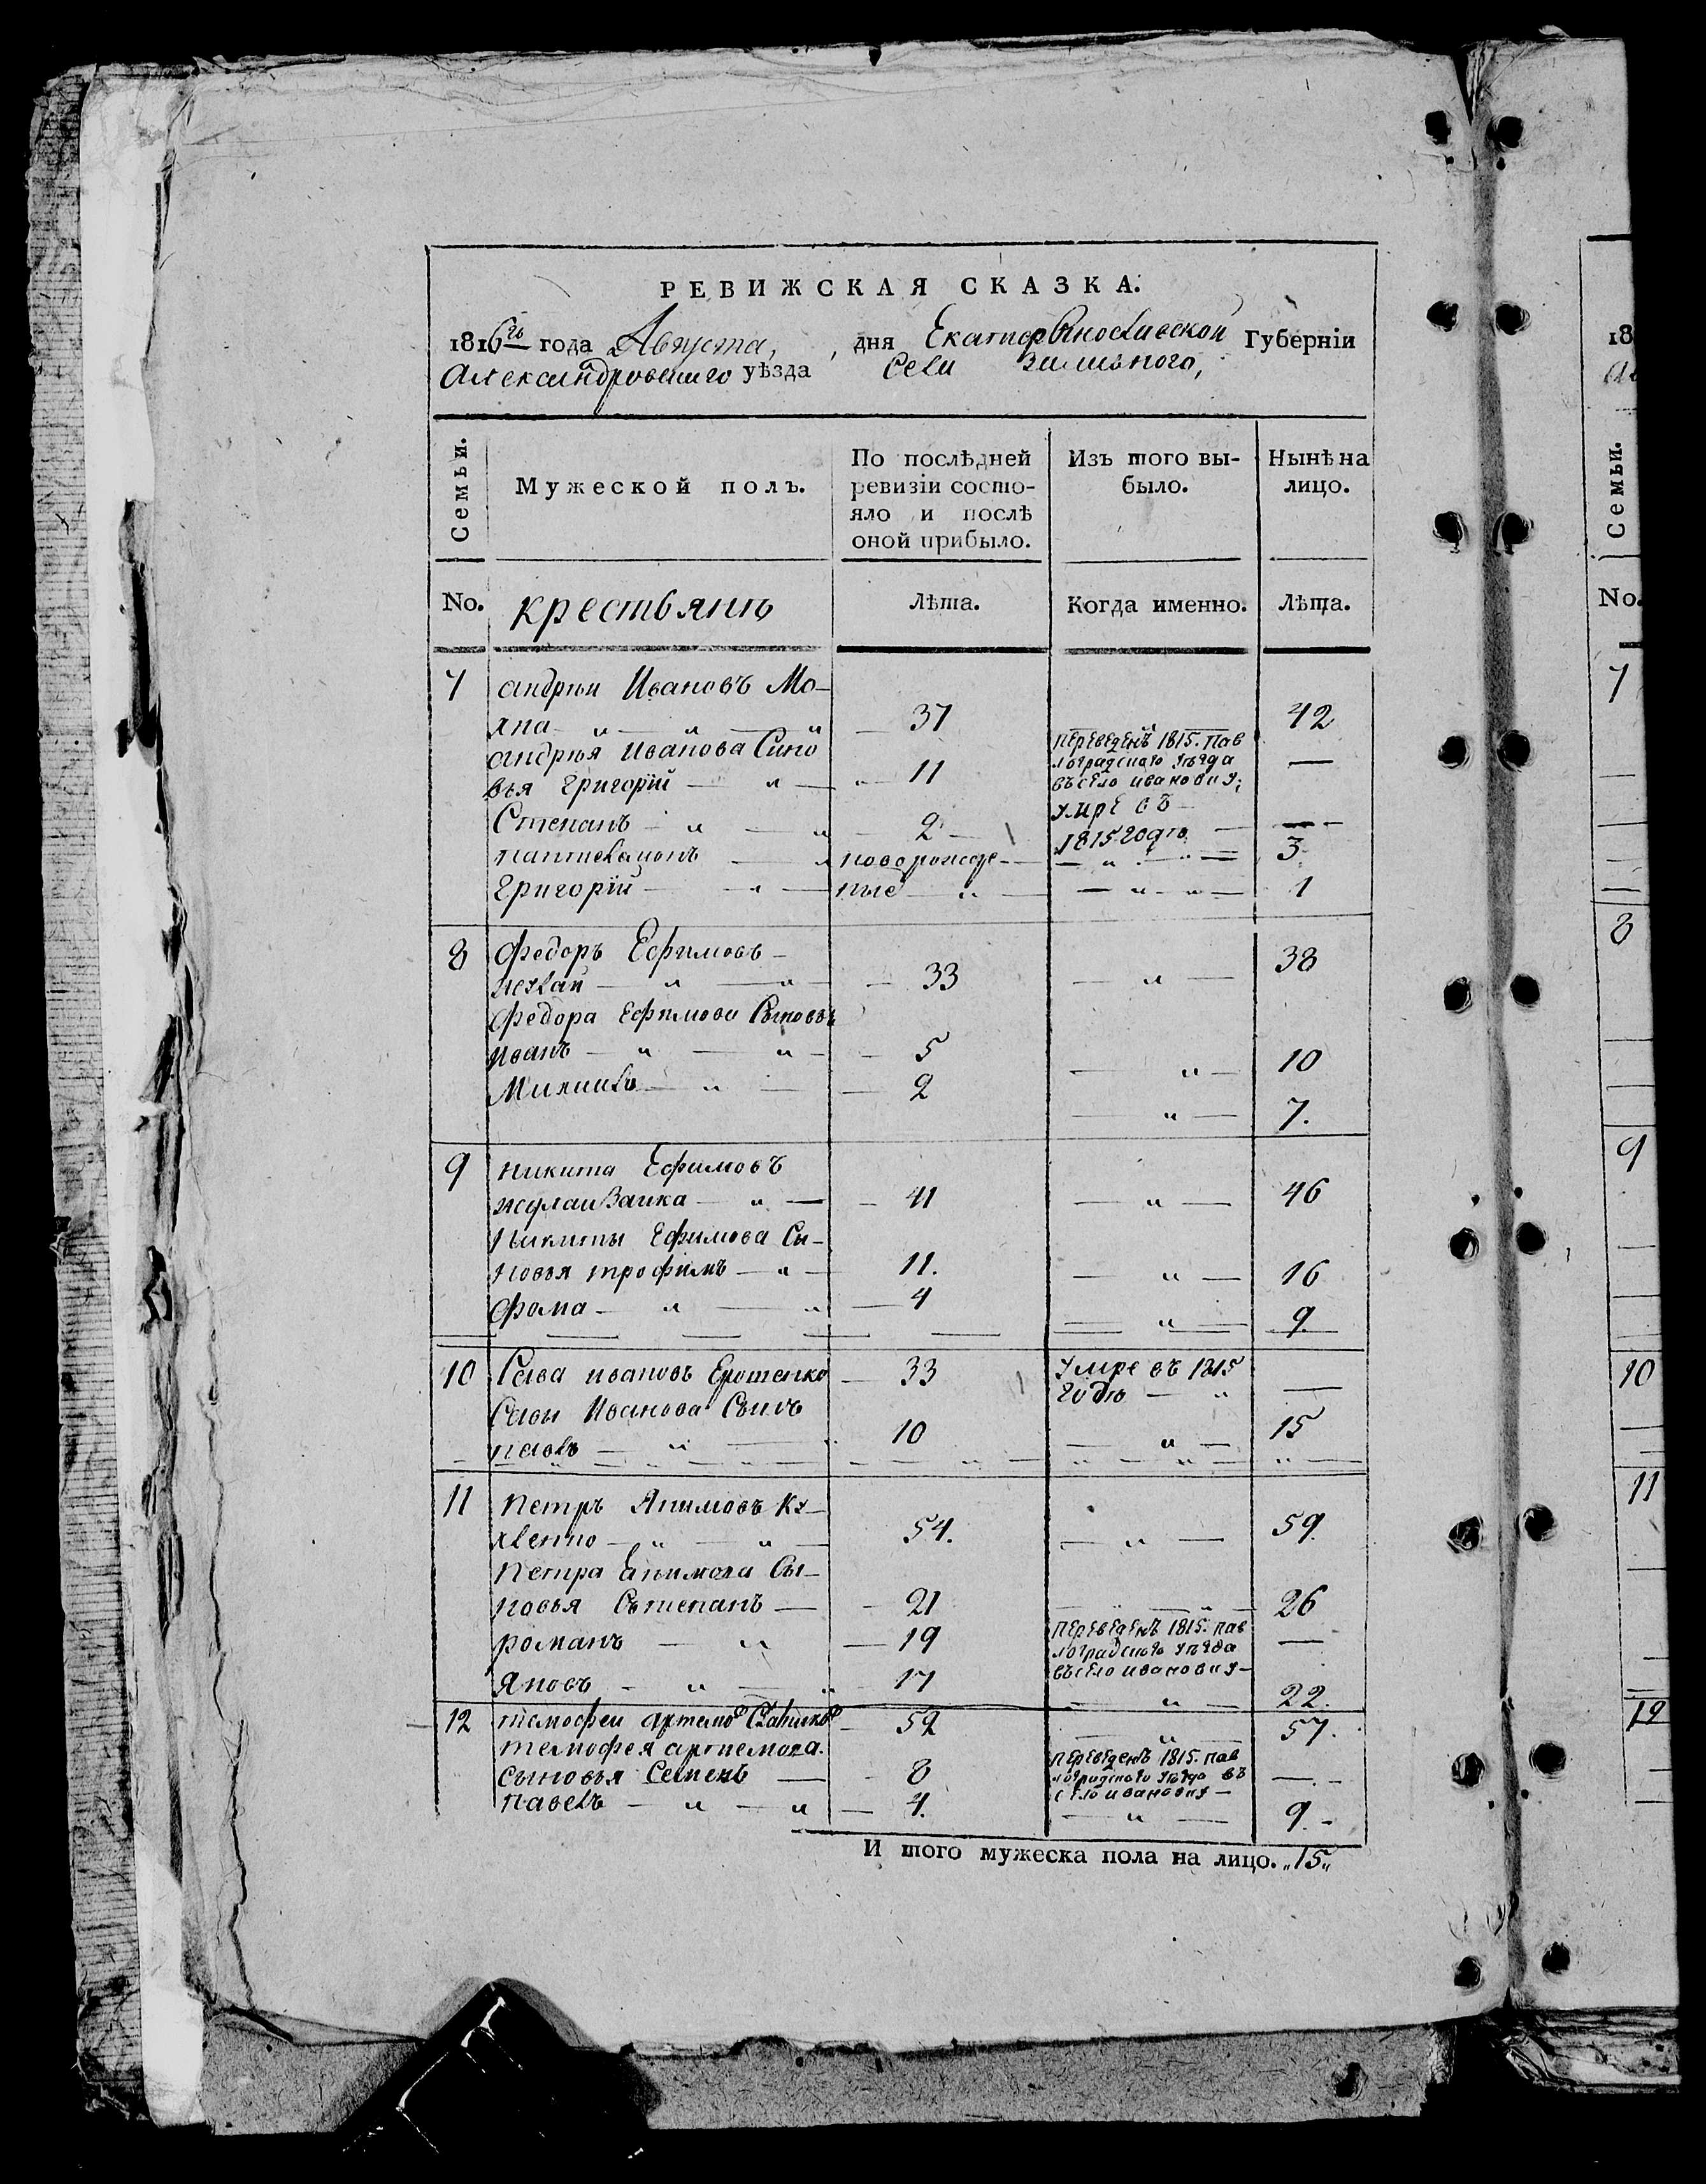 РЕВИЖСКАЯ СКАЗКА.
1816го года Августа, дня Екатеринославской Губерніи
Александровского уѣзда Села
Семьи.
Мужеской полъ.
По послѣдней ревизіи состо-
яло и послѣ
оной прибыло.
Изъ того вы-
было.
Нынѣ на
лицо.
No. крестьянъ Лѣта. Когда именно. Лѣта.
7 андрѣи Ивановъ Мо-
37 42
андрѣя Иванова Сино
вья Григорій 11 переведенъ 1815. Пав
лоградского уѣзда
въ село ивановку; —
Степанъ 2 умре въ
1815 годѣ —
пантилимонъ новорожде- 3
Григорій ные 1
8 Федоръ Ефимовъ
33 38
Федора Ефимова Сыновья
иванъ 5 10
2 7.
9 никита Ефимовъ
41 46
Никиты Ефимова Сы-
новья трофимъ 11. 16
фома 4 9
10 Сава ивановъ Ерошенко 33 Умре въ 1815
годѣ —
Савы Иванова Сынъ
10 15
11 петръ Якимовъ
54. 59.
петра Сы-
новья Степанъ 21 26
романъ 19 переведенъ 1815. пав
лоградского уѣзда
въ село ивановку —
Яковъ 17 22.
12 тимофеи 52 57.
тимофея артемова.
сыновья Семенъ 8 переведенъ 1815. пав
лоградского уѣзда въ
село ивановку —
павелъ 4. 9.
И того мужеска пола на лицо. „15„
18
Семьи.
No.
7
8
9
10
11
12